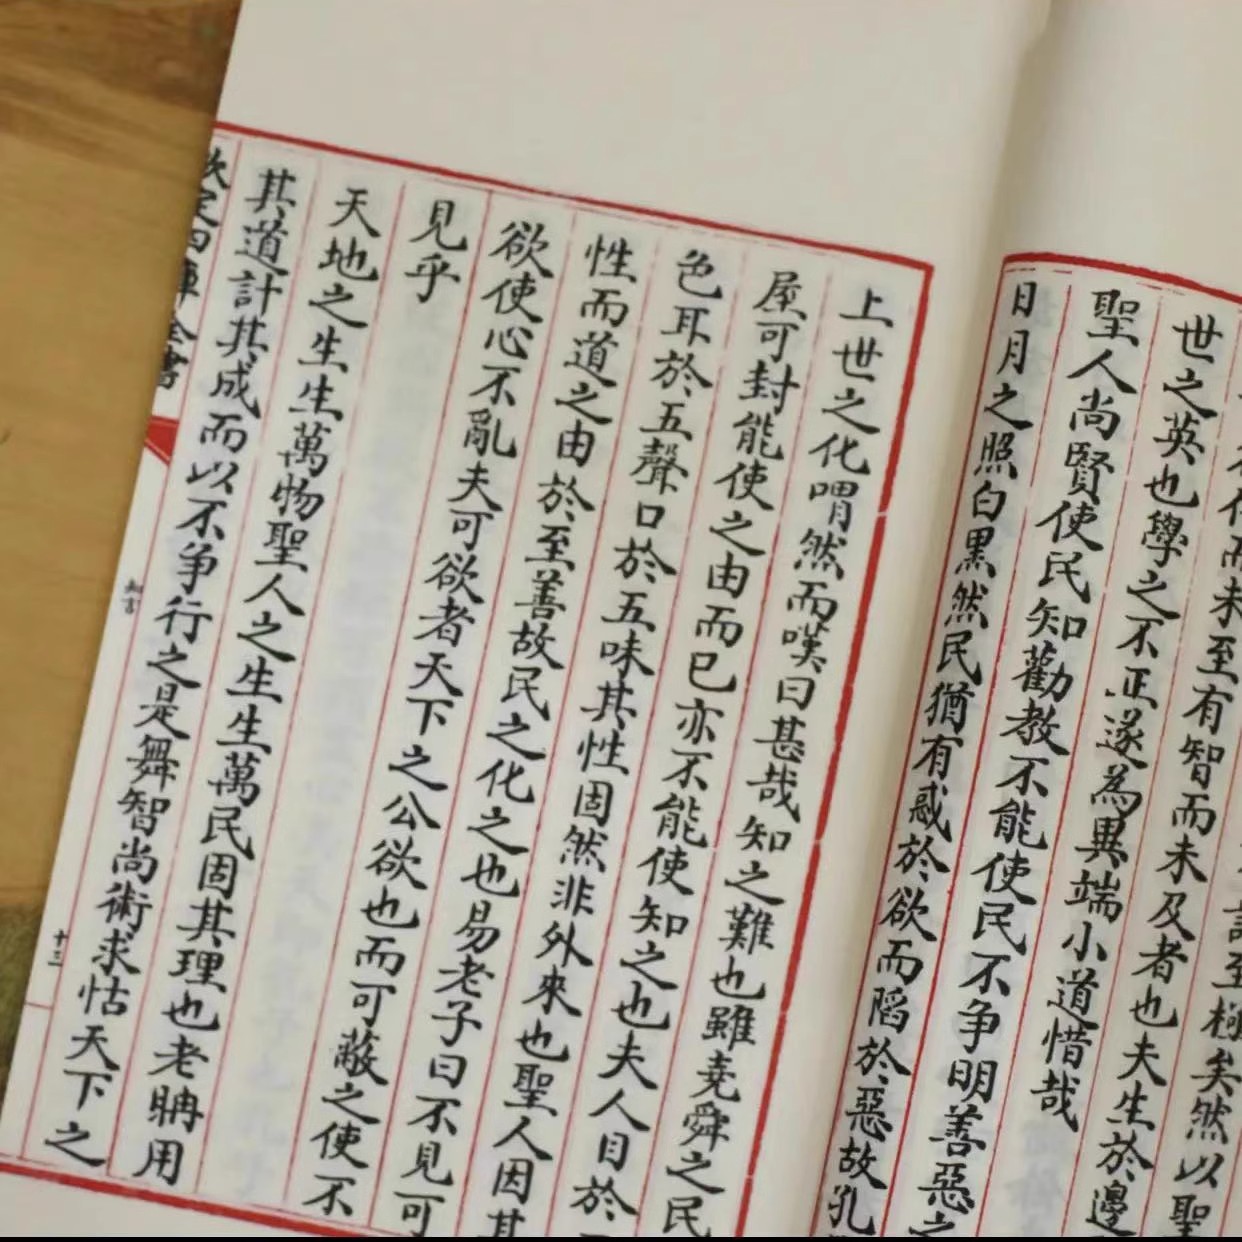 至極矣然以聖
而未至有智而未及者也夫生於邊
世之英也學之不正遂為異端小道惜哉
聖人尚賢使民知勸教不能使民不争明善惡之
日月之照白黒然民猶有惑於欲而陷於惡故孔
上世之化喟然而嘆曰甚哉知之難也雖堯舜之民
屋可封能使之由而已亦不能使知之也夫人目於
色耳於五聲口於五味其性固然非外來也聖人因其
性而道之由於至善故民之化之也易老子曰不見可
欲使心不亂夫可欲者天下之公欲也而可蔽之使不
見乎
天地之生生萬物聖人之生生萬民固其理也老聃用
其道計其成而以不争行之是舞智尚術求怙天下之
欽定四庫全書
知言
十三